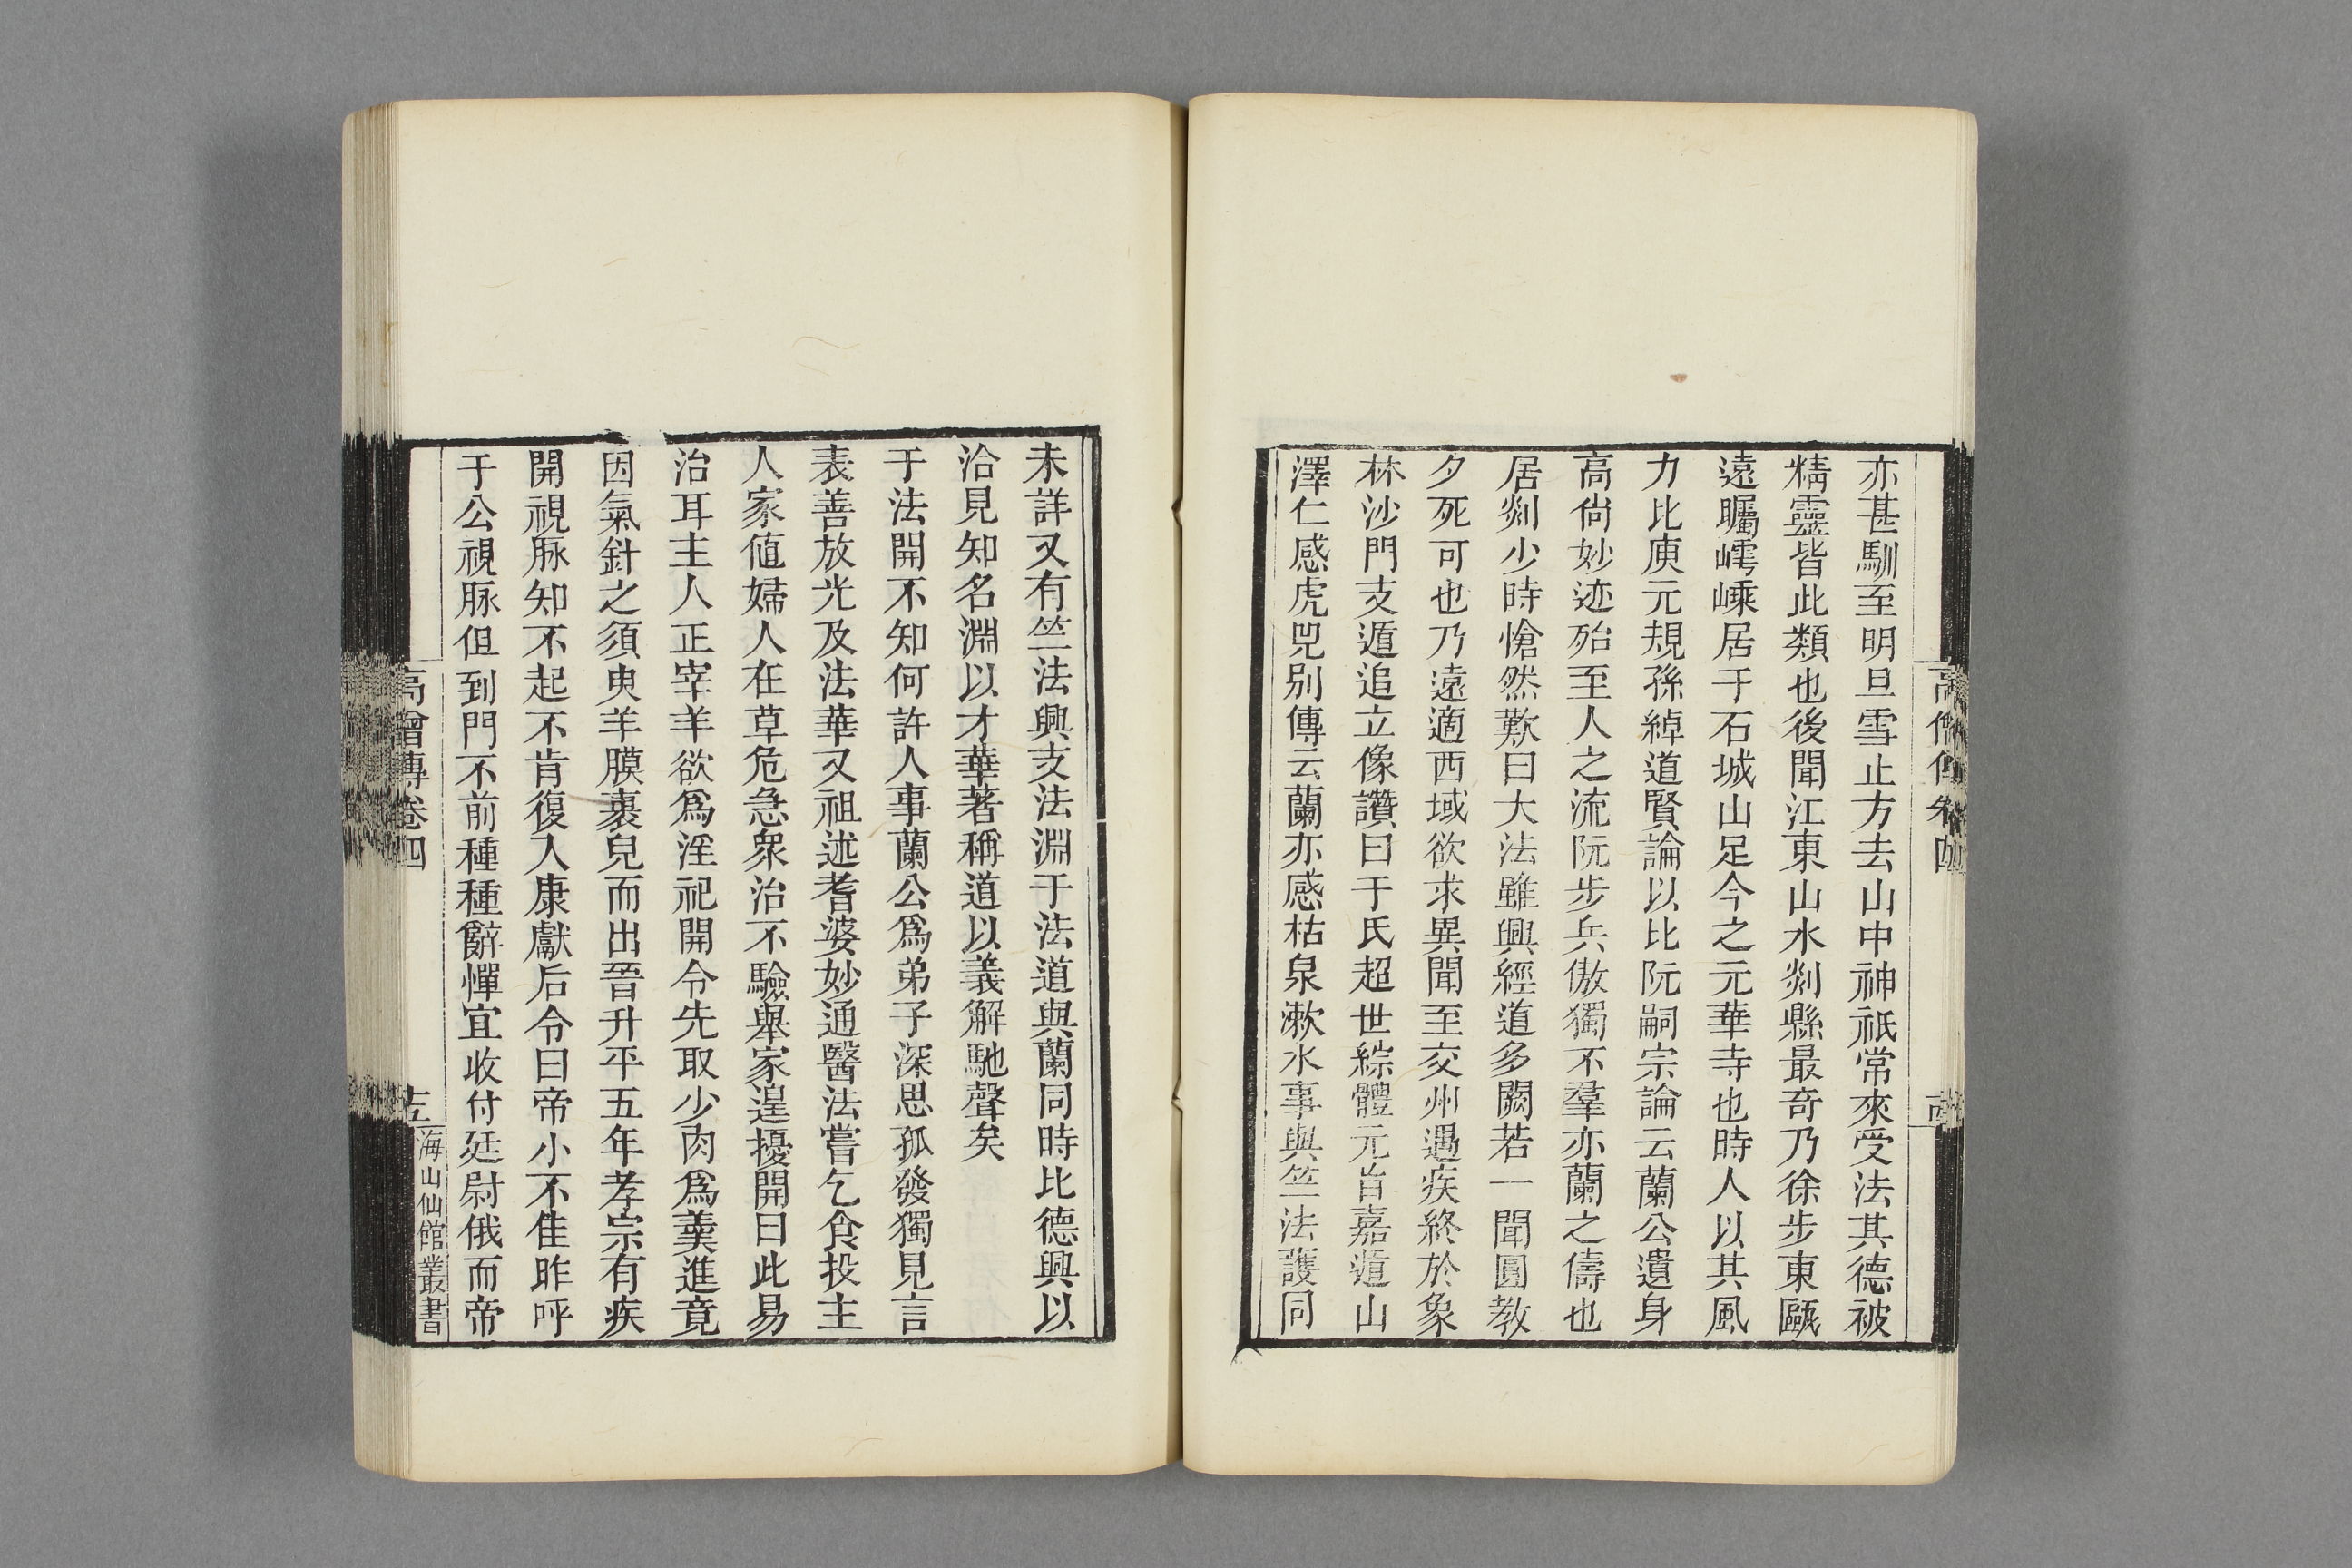 亦甚馴至明旦雪止方去山中神祇常來受法其德被
精靈皆此類也後聞江東山水剡縣最奇乃徐步東甌
遠矚嶀嵊居于石城山足今之元華寺也時人以其風
力比庾元規孫綽道賢論以比阮嗣宗論云蘭公遺身
高尚妙迹殆至人之流阮步兵傲獨不羣亦蘭之儔也
居剡少時愴然歎曰大法雖興經道多闕若一聞圓教
夕死可也乃遠適西域欲求異聞至交州遇疾終於象
林沙門支遁追立像讚曰于氏超世綜體元旨嘉遁山
澤仁感虎兕別傳云蘭亦感枯泉漱水事與竺法護同
未詳又有竺法興支法淵于法道與蘭同時比德興以
洽見知名淵以才華著稱道以義解馳聲矣
于法開不知何許人事蘭公爲弟子深思孤發獨見言
表善放光及法華又祖述耆婆妙通醫法嘗乞食投主
人家値婦人在草危急衆治不驗舉家遑擾開曰此易
治耳主人正宰羊欲爲淫祀開令先取少肉爲羹進竟
因氣針之須臾羊膜裹兒而出晉升平五年孝宗有疾
開視脉知不起不肯復入康獻后令曰帝小不佳昨呼
于公視脉但到門不前種種辭憚宜收付廷尉俄而帝
高僧傳卷四
海山仙館叢書